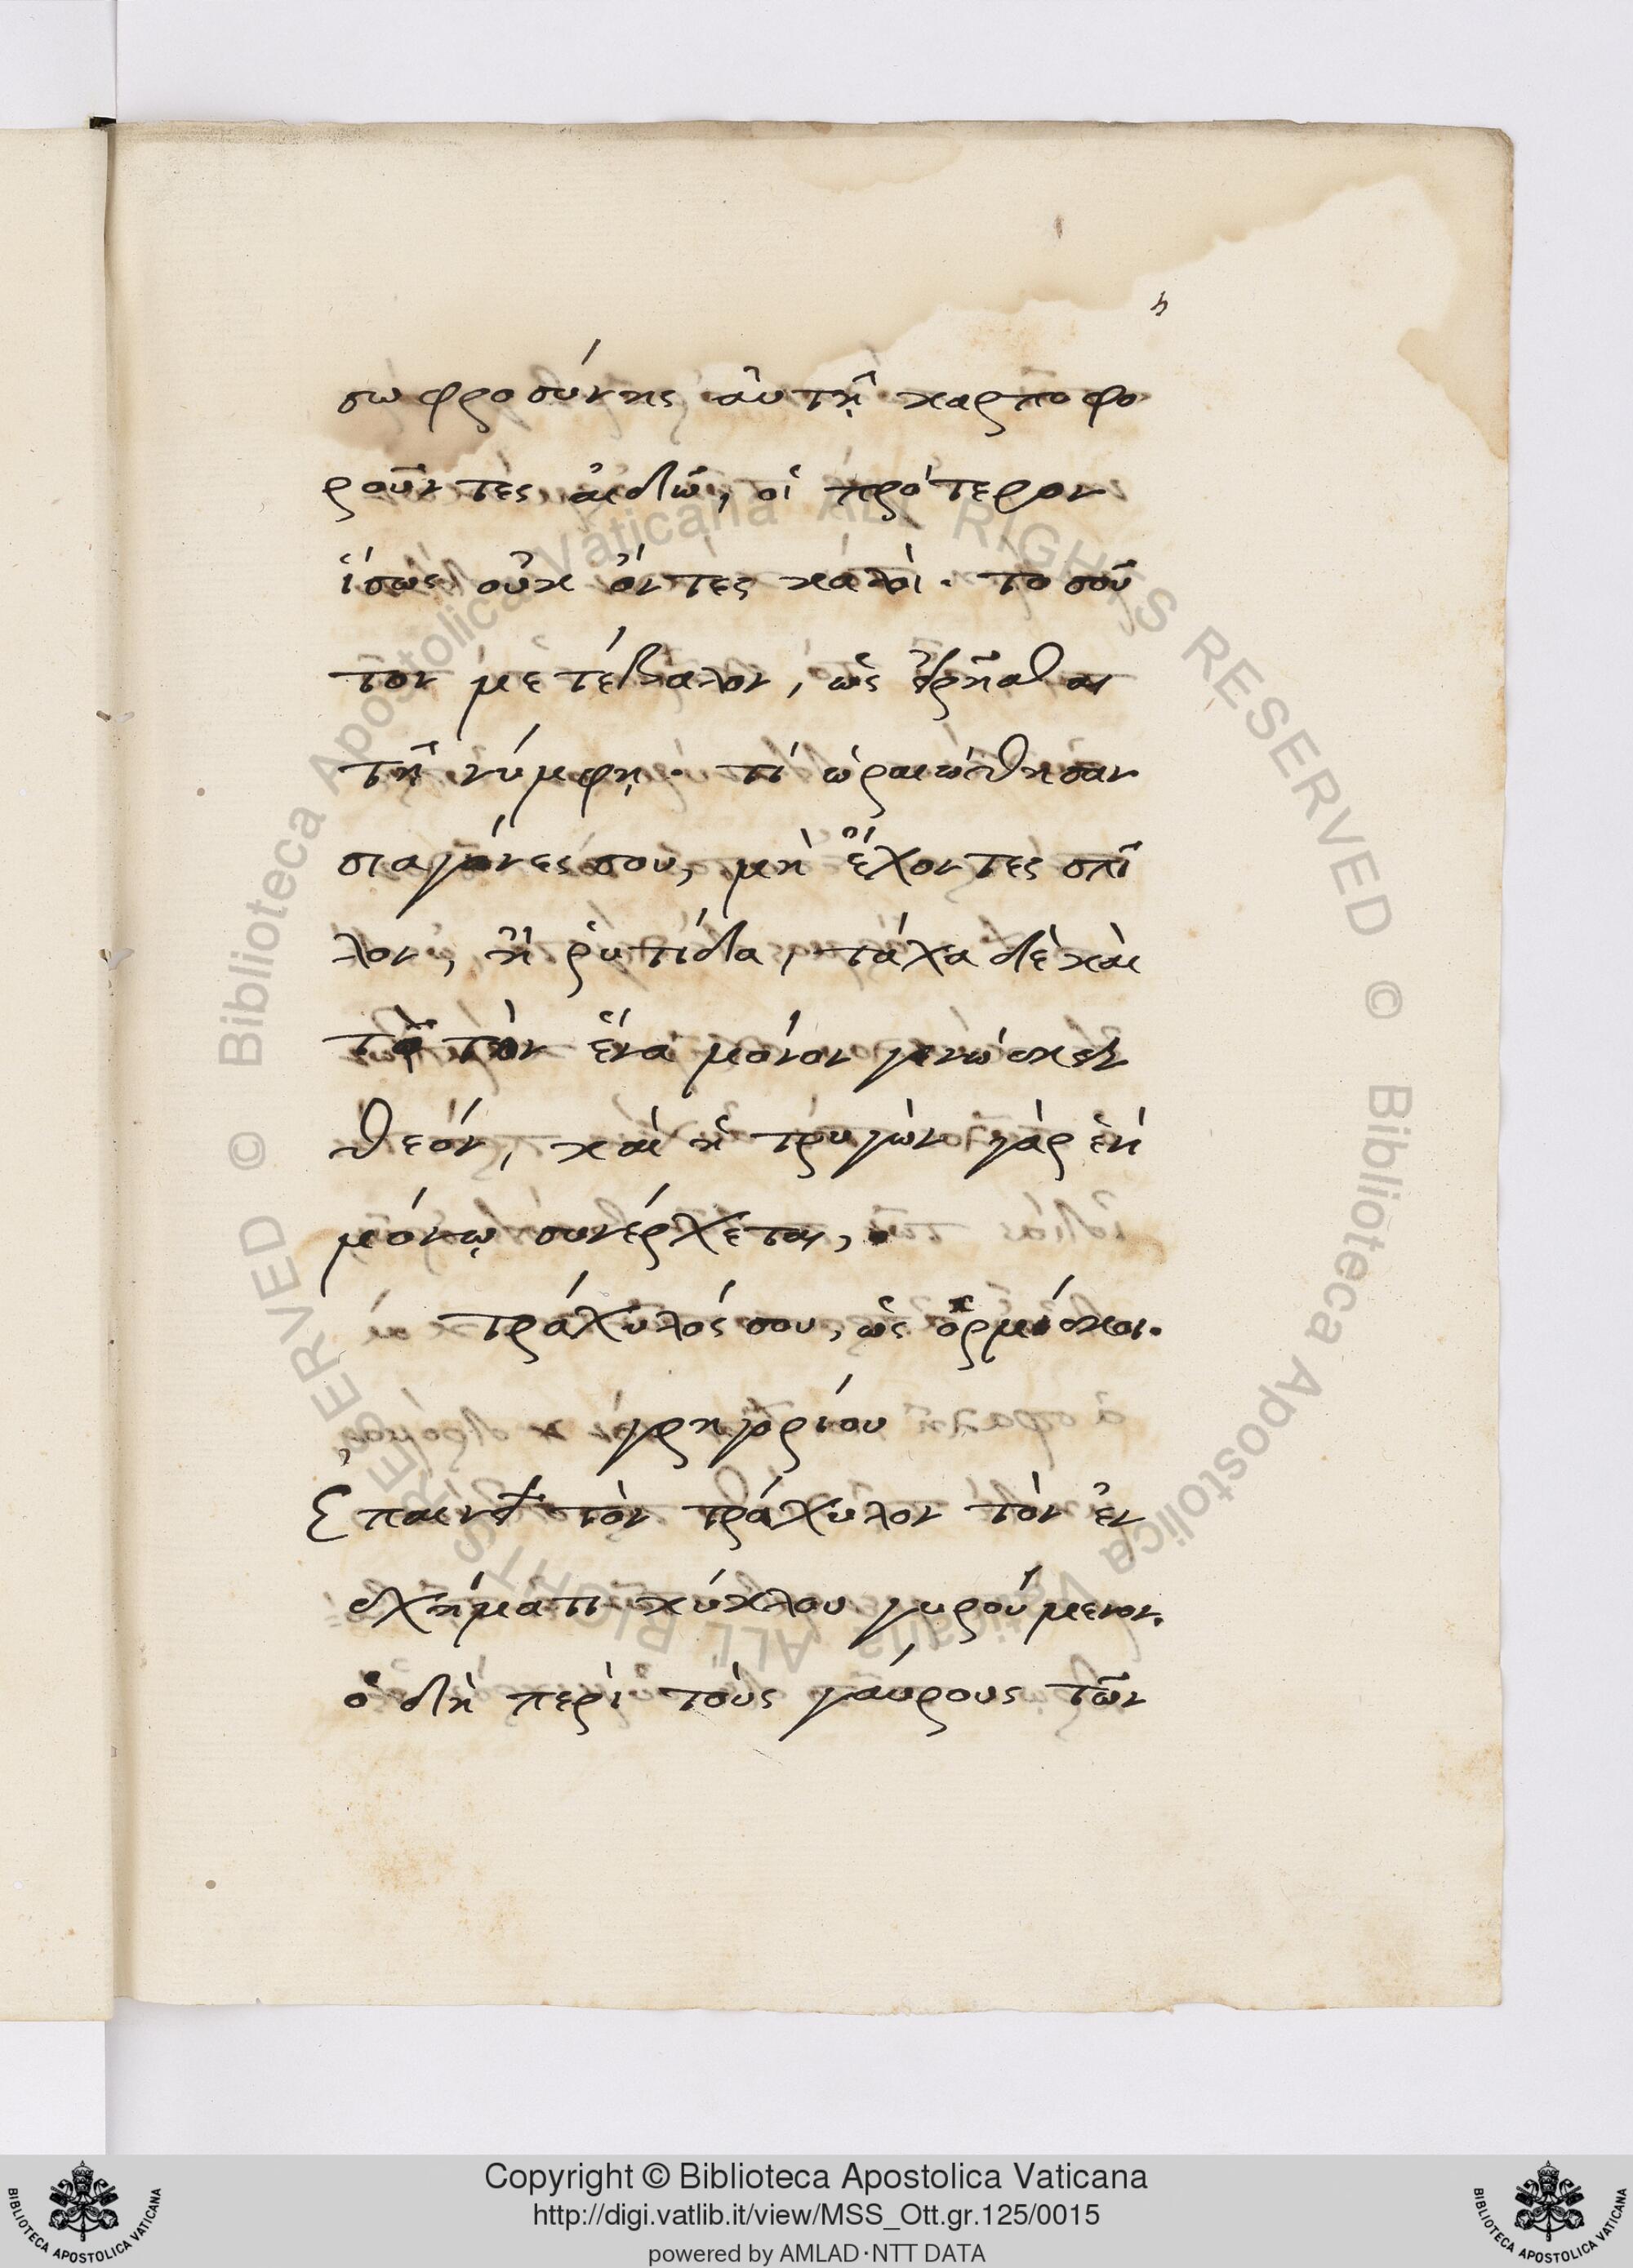 4
σωφροσύνης αὐτῇ καρποφο
ροῦντες αἰδῶ, οἱ πρότερον
ἴσως οὐκ ὄντες καλοὶ. τοσοῦ
τον μετέβαλον, ὡς εἰρῆσθαι
τῇ νύμφῃ. τί ὡραιώθησαν
σιαγόνες σου, μὴ ἔχοντες σπῖ
λον, ἢ ῥυτίδα, τάχα δὲ καὶ
τῷ τὸν ἕνα μόνον γινώσκειν
θεόν, καὶ ἡ τρυγὼν γὰρ ἑνὶ
μόνῳ συνέρχεται,
τράχυλός σου, ὡς ὁρμίσκοι.
γρηγορίου
Ἐπαινεῖ τὸν τράχυλον τὸν ἐν
σχήματι κύκλου γυρούμενον.
ὃ δὴ περὶ τοὺς γαύρους τῶν
Copyright © Biblioteca Apostolica Vaticana
http://digi.vatlib.it/view/MSS_Ott.gr.125/0015
powered by AMLAD·NTT DATA
BIBLIOTECA APOSTOLICA VATICANA
BIBLIOTECA APOSTOLICA VATICANA
© Biblioteca Apostolica Vaticana ALL RIGHTS RESERVED
© Biblioteca Apostolica Vaticana ALL RIGHTS RESERVED